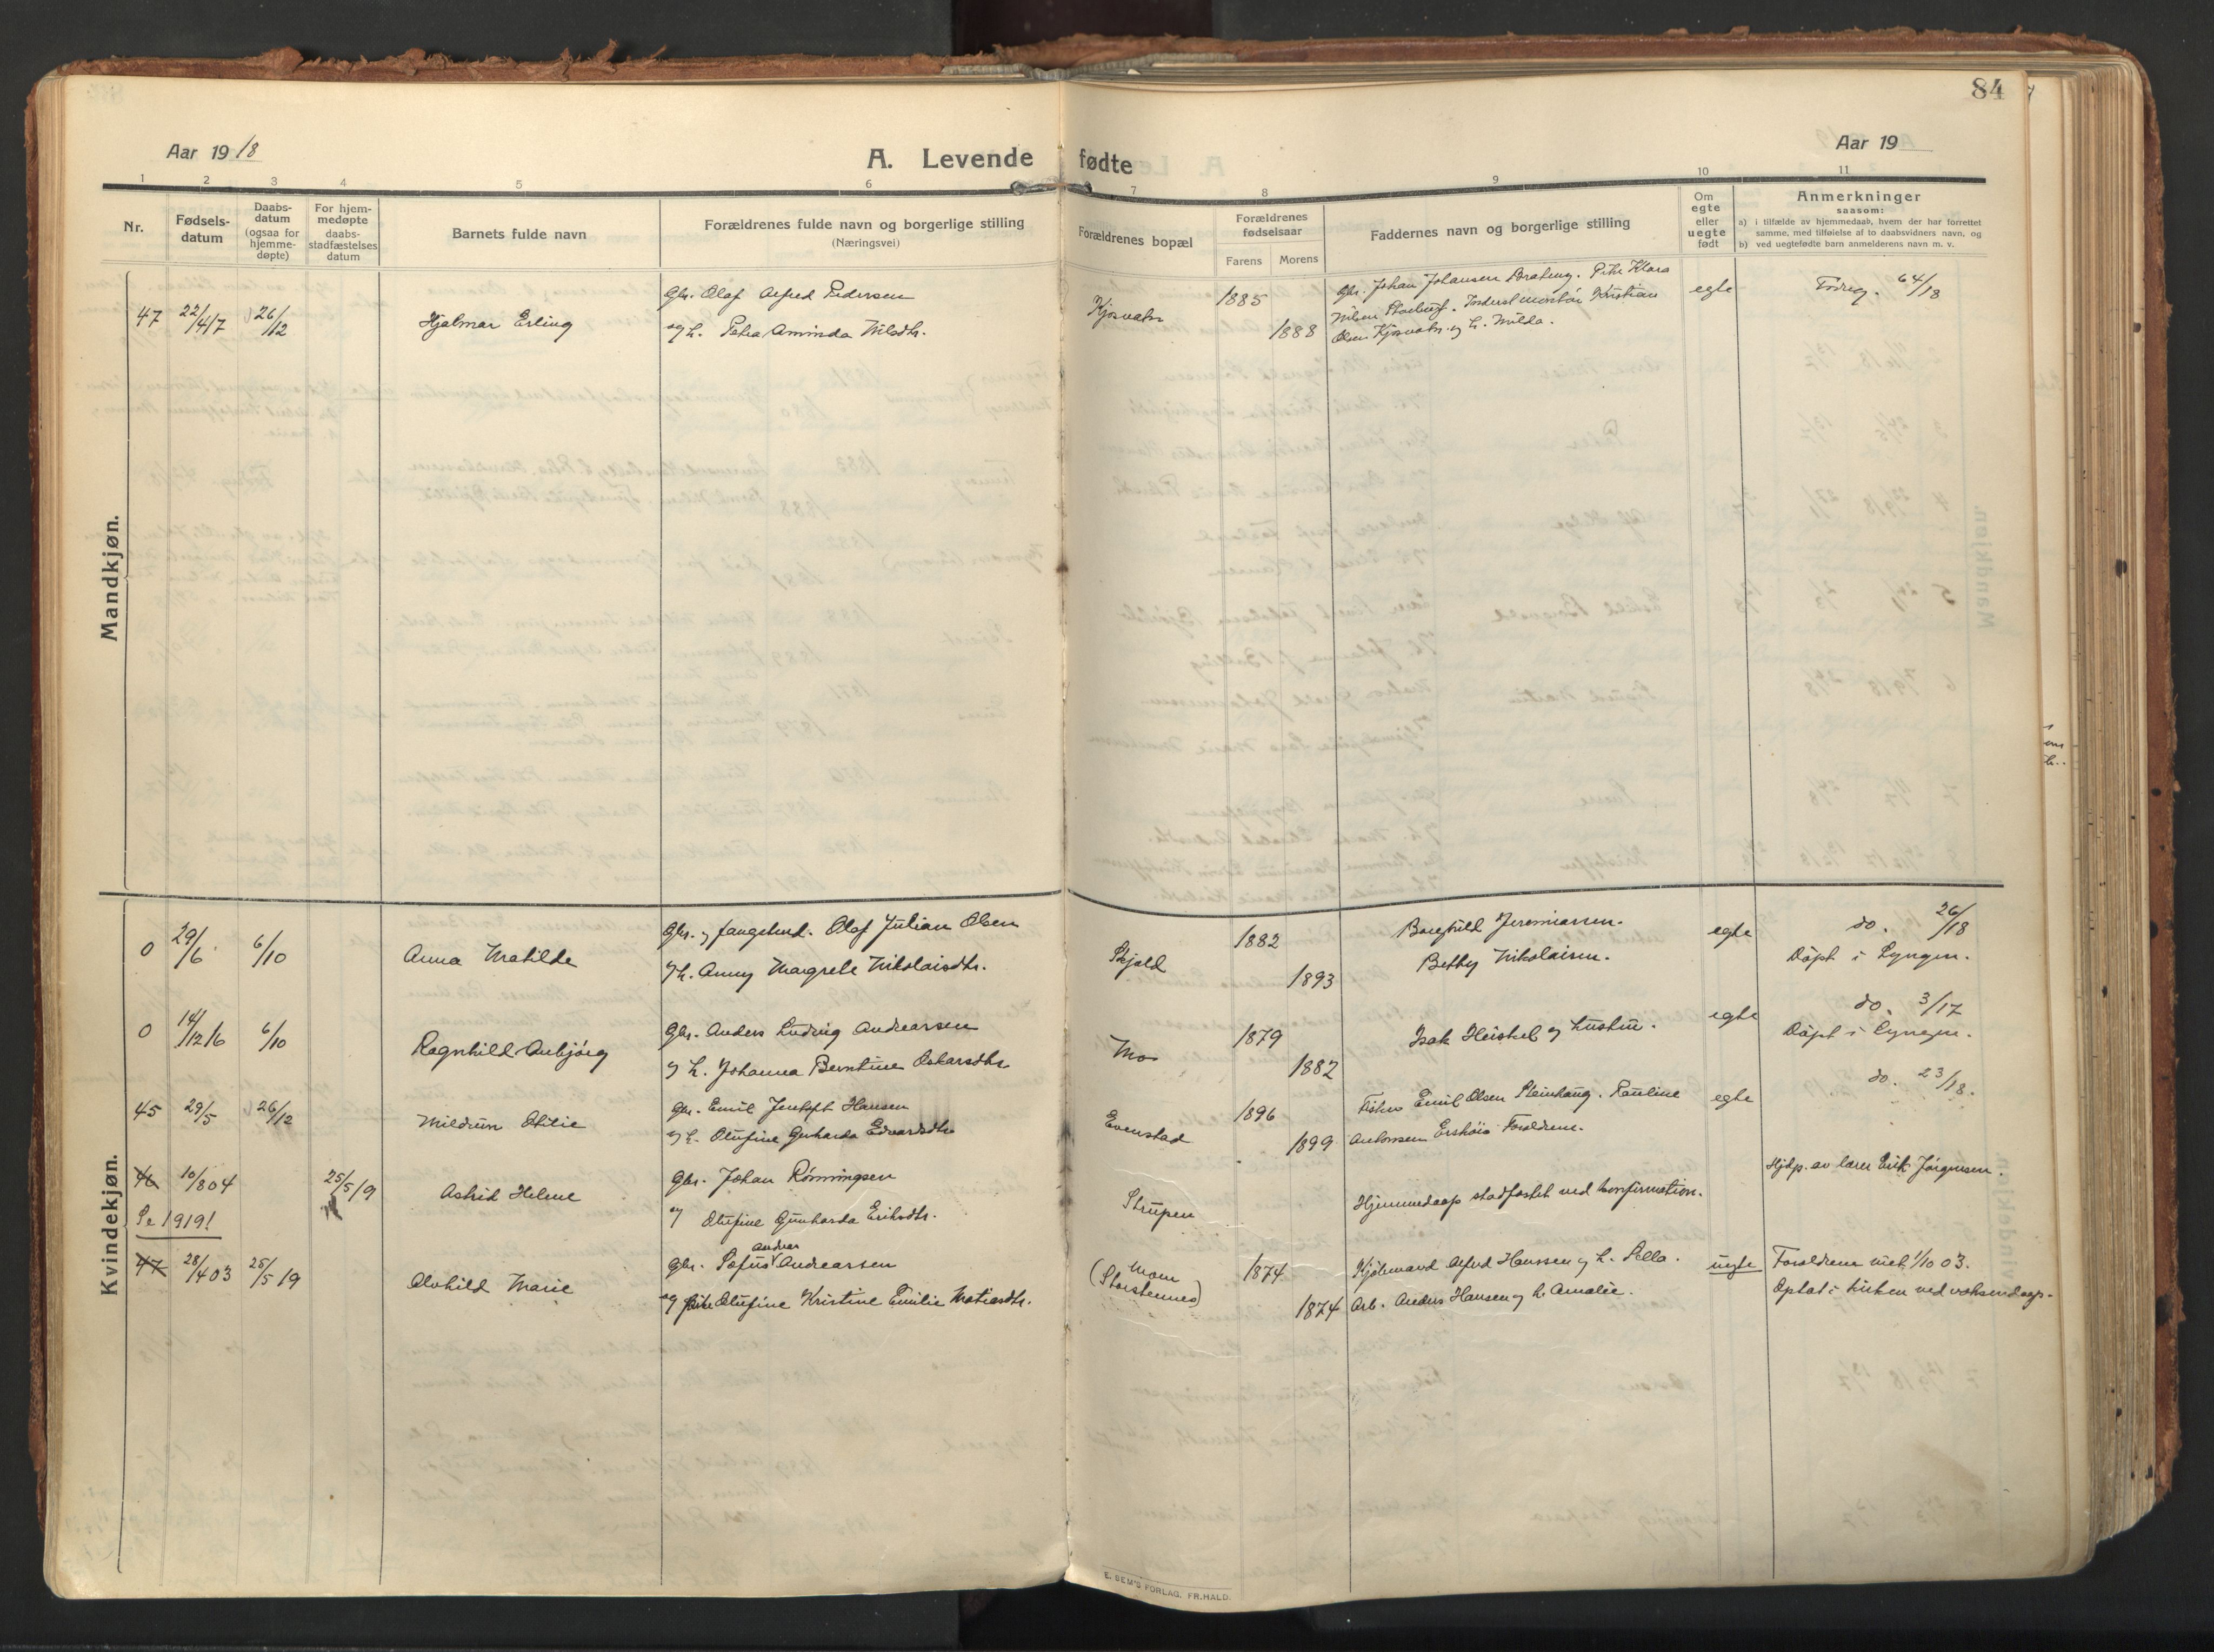 84
Aar 1918
A. Levende fødte
Aar 19
1 2 3 4 5 6 7 8 9 10 11
Nr.
Fødsels-
datum
Daabs-
datum
(ogsaa for
hjemme-
døpte)
For hjem-
medøpte
daabs-
stadfæstelses
datum
Barnets fulde navn
Forældrenes fulde navn og borgerlige stilling
(Næringsvei)
Forældrenes bopæl
Forældrenes
fødselsaar
Farens Morens
Faddernes navn og borgerlige stilling
Om
egte
eller
uegte
født
Anmerkninger
saasom:
a) i tilfælde av hjemmedaab, hvem der har forrettet
samme, med tilføielse af to daabsvidners navn, og
b) ved uegtefødte barn anmelderens navn m. v.
Mandkjøn.
47 22/4 17 26/12 Hjalmar Erling
Gbr. Olaf Alfred Pedersen
og h. Petra Aminda Nilsdtr.
Kjosvatn 1885
1888
Gbr. Johan Johansen Brateng. Pike Klara
Nilsen Storbugt. Kristian
Olsen Kjosvatn og h. Milda.
egte
64/18
Kvindekjøn.
0 29/6 6/10 Anna Matilde
Gbr. og fangstmd. Olaf Julian Olsen
og h. Anny Margrete Nikolaisdtr.
Skjold 1882
1893
Borghild Jeremiassen.
Betty Nikolaisen.
egte
do. 26/18
Døpt i Lyngen.
0 14/12 16 6/10 Ragnhild Anbjørg
Gbr. Anders Ludvig Andreassen
og h. Johanna Berntine Oskarsdtr
Mo 1879
1882
Isak Heiskel og hustru.
egte
do. 3/17
Døpt i Lyngen.
45 29/5 26/12 Mildrun Otilie
Gbr. Emil Jentoft Hansen
og h. Olufine Gerharda Edvardsdtr
Evenstad 1896
1899
Fisker Emil Olsen Steinhaug. Pauline
Antonsen Foreldrene.
egte
do. 23/18.
46 10/8 04 25/5 19 Astrid Helene
Se 1919!
Gbr. Johan Rønningsen
og Olufine Gunharda Eriksdtr.
Strupen
Hjemmedaap stadfæstet ved konfirmation.
Hjdp. av lærer Erik Jørgensen.
47 28/4 03 25/5 19 Alvhild Marie
Gbr. Sofus Andreas Andreassen
og pike Olufine Kristine Emilie Matiasdtr.
Moen
(Storstennes)
1874
1874
Kjøbmand Alfred Hanssen og h.Ella.
Arb. Anders Hansen og h. Amalie.
uegte
Forældrene viet 1/10 03.
Optat i kirken ved voksendaap.
E. SEM'S FORLAG. FR.HALD.